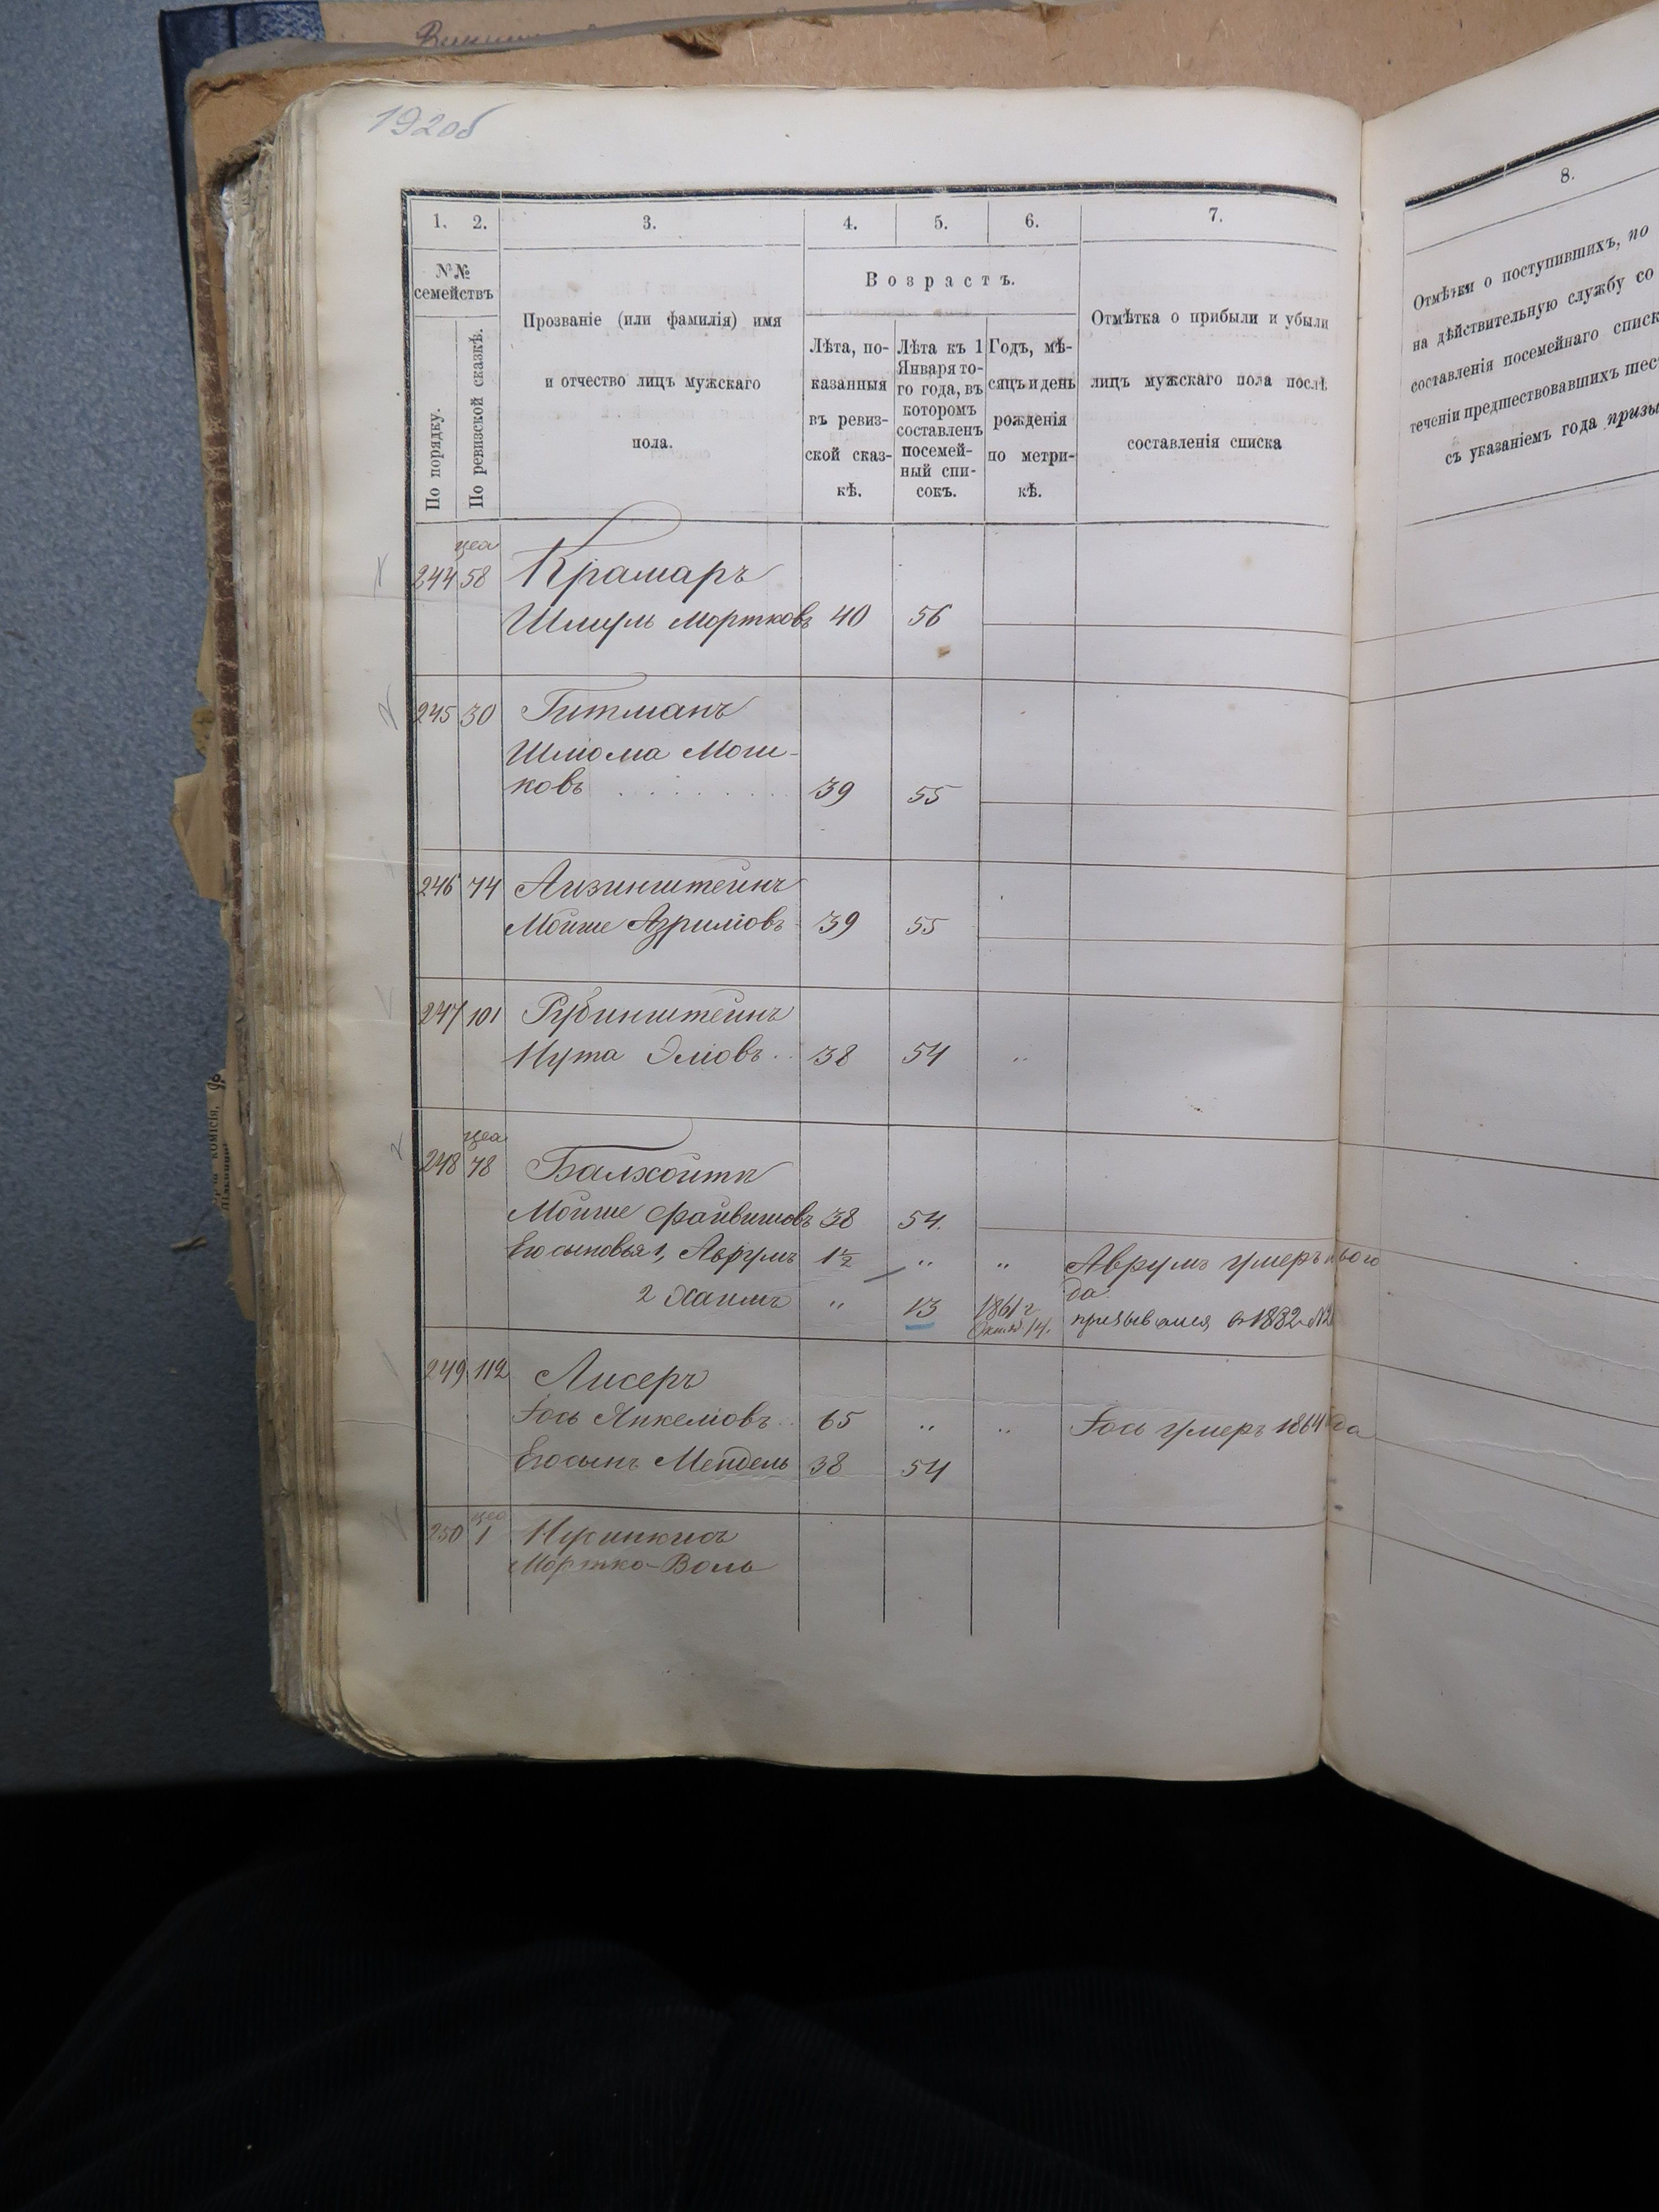 192об
1. 2. 3. 4. 5. 6. 7.
№№ семействъ
По порядку.
По ревизской сказкѣ.
Прозваніе (или фамилія) имя
и отчество лицъ мужскаго
пола.
Возрастъ.
Лѣта, по-
казанныя
въ ревиз-
ской сказ-
кѣ.
Лѣта къ 1
Января то-
го года, въ
которомъ
составленъ
посемей-
ный спи-
сокъ.
Годъ, мѣ-
сяцъ и день
рожденія
по метри-
кѣ.
Отмѣтка о прибыли и убыли
лицъ мужскаго пола послѣ
составленія списка
244 58 Крамаръ
Шмуль Мортковъ 40 56
245 30 Гитманъ
Шлюма Мош-
ковъ 39 55
246 74 Аизинштейнъ
Мойше Азриліовъ 39 55
247 101 Рубинштейнъ
Нута Эліовъ 38 54 "
248 78 Балхойтъ
Мойше Файвишовъ 38 54
Его сыновья 1, Аврумъ 1½ " " Аврумъ умеръ
да
2 Хаимъ " 13 1861 г. 14. призывался в 1882
249 112 Лисеръ
Іось Янкеліовъ 65 " " Іось умеръ 1864 года
Его сынъ Мендель 38 54
250 1
Мортко-Воль
8.
Отмѣтки о поступившихъ, по
на дѣйствительную службу со
составленія посемейнаго списк
теченіи предшествовавшихъ шес
съ указаніемъ года призы